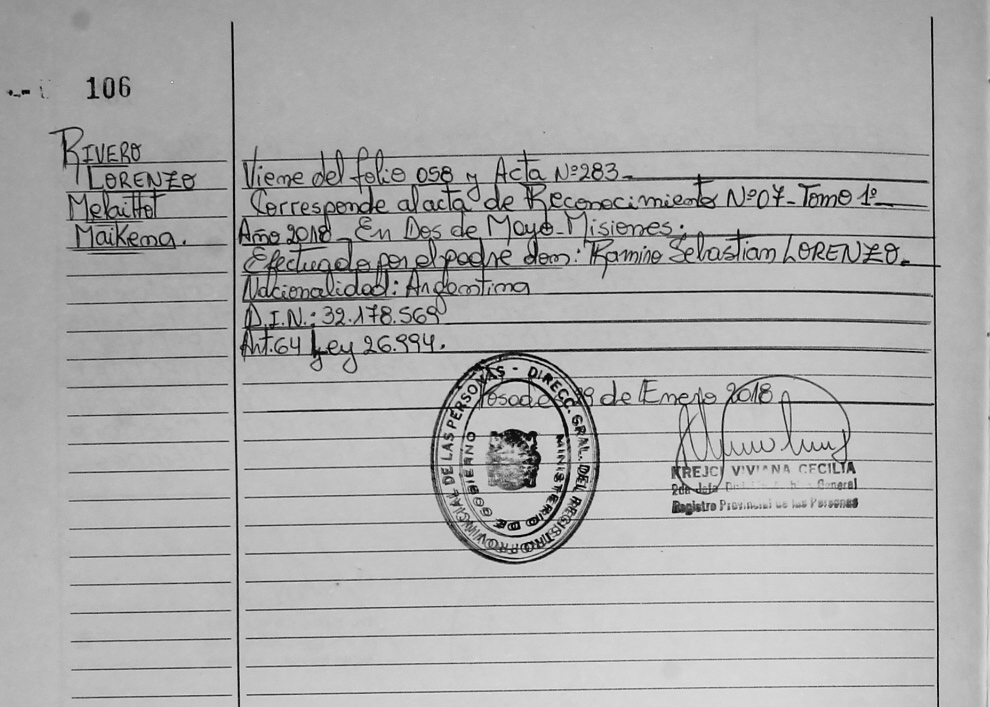 106
RIVERO
LORENZO
Melaittot
Maikena.
Viene del folio 058 y Acta Nº283-
Corresponde al acta de Reconocimiento Nº07- Tomo 1º-
Año 2018- En Dos de Mayo-Misiones.
Efectuado por el padre don: Ramiro Sebastian LORENZO.-
Nacionalidad: Argentina
D.I.N.: 32.178.569
Art.64 Ley 26.994.
Posadas 29 de Enero 2018
PROVINCIAL DE LAS PERSONAS - DIRECC. GRAL. DEL REGISTRO
MINISTERIO DE GOBIERNO
KREJCI VIVIANA CECILIA
2da Jefa General
Registro Provincial de las Personas